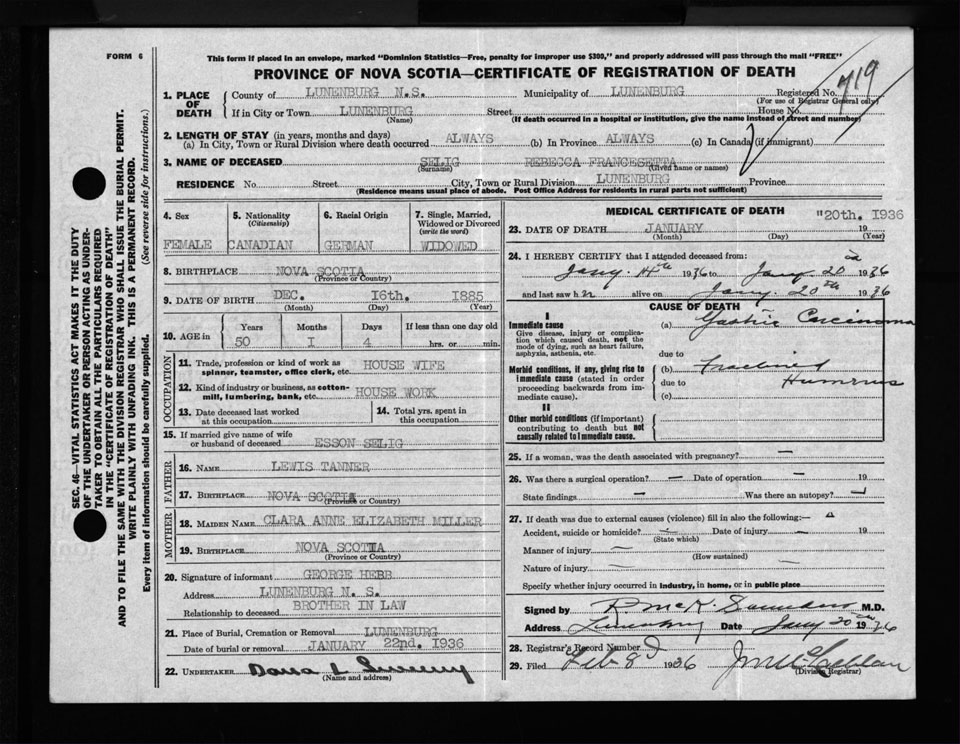 FORM 6
This form if placed in an envelope, marked "Dominion Statistics—Free, penalty for improper use $300," and properly addressed will pass through the mail "FREE"
PROVINCE OF NOVA SCOTIA—CERTIFICATE OF REGISTRATION OF DEATH
719
SEC. 46—VITAL STATISTICS ACT MAKES IT THE DUTY
OF THE UNDERTAKER OR PERSON ACTING AS UNDER-
TAKER TO OBTAIN ALL THE PARTICULARS REQUIRED
IN THE "CERTIFICATE OF REGISTRATION OF DEATH"
AND TO FILE THE SAME WITH THE DIVISION REGISTRAR WHO SHALL ISSUE THE BURIAL PERMIT.
WRITE PLAINLY WITH UNFADING INK. THIS IS A PERMANENT RECORD.
Every item of information should be carefully supplied. (See reverse side for instructions.)
1. PLACE OF DEATH
County of LUNENBURG N.S. Municipality of LUNENBURG Registered No.
(For use of Registrar General only)
If in City or Town LUNENBURG Street House No.
(Name) (If death occurred in a hospital or institution, give the name instead of street and number)
2. LENGTH OF STAY (in years, months and days)
(a) In City, Town or Rural Division where death occurred ALWAYS (b) In Province ALWAYS (c) In Canada (if immigrant)
3. NAME OF DECEASED SELIG REBECCA FRANCESETTA
(Surname) (Given name or names)
RESIDENCE No. Street City, Town or Rural Division LUNENBURG Province
(Residence means usual place of abode. Post Office Address for residents in rural parts not sufficient)
4. Sex FEMALE
5. Nationality (Citizenship) CANADIAN
6. Racial Origin GERMAN
7. Single, Married, Widowed or Divorced (write the word) WIDOWED
8. BIRTHPLACE NOVA SCOTIA
(Province or Country)
9. DATE OF BIRTH DEC. 16th. 1885
(Month) (Day) (Year)
10. AGE in Years Months Days If less than one day old
50 I 4 hrs. or min.
OCCUPATION
11. Trade, profession or kind of work as spinner, teamster, office clerk, etc. HOUSE WIFE
12. Kind of industry or business, as cotton-mill, lumbering, bank, etc. HOUSE WORK
13. Date deceased last worked at this occupation
14. Total yrs. spent in this occupation
15. If married give name of wife or husband of deceased ESSON SELIG
FATHER
16. NAME LEWIS TANNER
17. BIRTHPLACE NOVA SCOTIA
(Province or Country)
MOTHER
18. MAIDEN NAME CLARA ANNE ELIZABETH MILLER
19. BIRTHPLACE NOVA SCOTIA
(Province or Country)
20. Signature of informant GEORGE HEBB
Address LUNENBURG N. S.
Relationship to deceased BROTHER IN LAW
21. Place of Burial, Cremation or Removal LUNENBURG
Date of burial or removal JANUARY 22nd. 1936
22. UNDERTAKER
(Name and address)
MEDICAL CERTIFICATE OF DEATH
23. DATE OF DEATH JANUARY "20th. 1936 19
(Month) (Day) (Year)
24. I HEREBY CERTIFY that I attended deceased from:
Jany. 14th 1936 to Jany 20 1936
and last saw her alive on Jany. 20th 1936
CAUSE OF DEATH
I
Immediate cause
Give disease, injury or complication which caused death, not the mode of dying, such as heart failure, asphyxia, asthenia, etc.
(a) Gastric Carcinoma
due to
Morbid conditions, if any, giving rise to immediate cause (stated in order proceeding backwards from immediate cause).
(b) Fractured
due to Humerus
(c)
II
Other morbid conditions (if important) contributing to death but not causally related to immediate cause.
25. If a woman, was the death associated with pregnancy? —
26. Was there a surgical operation? — Date of operation — 19
State findings — Was there an autopsy? —
27. If death was due to external causes (violence) fill in also the following:—
Accident, suicide or homicide? — Date of injury — 19
(State which)
Manner of injury —
(How sustained)
Nature of injury —
Specify whether injury occurred in industry, in home, or in public place
Signed by R. McK. Saunders M.D.
Address Lunenburg Date Jany 20th 1936
28. Registrar's Record Number
29. Filed Feb 8 1936
(Division Registrar)